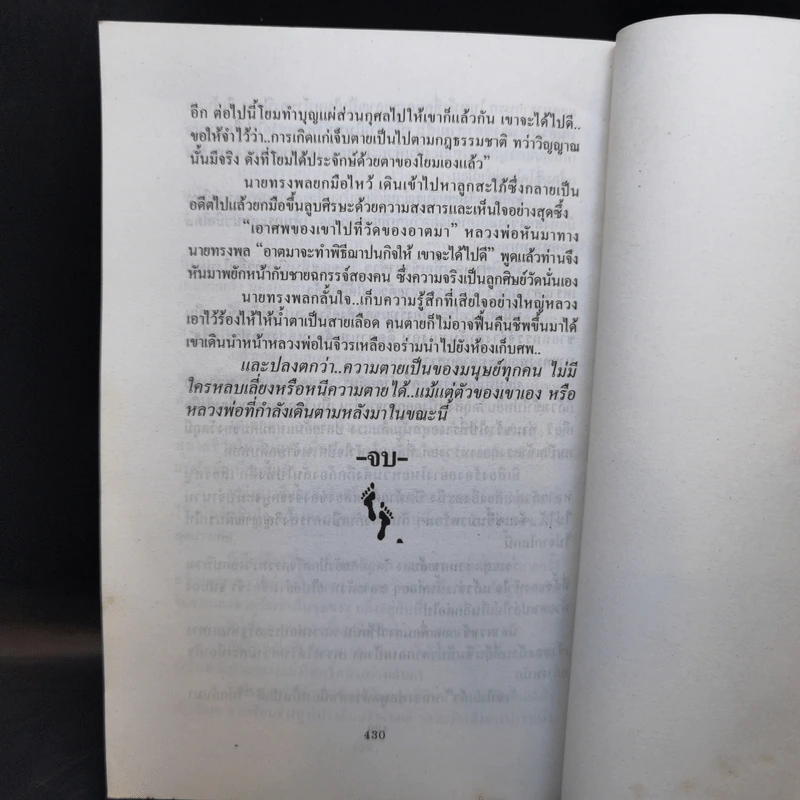 อีก ต่อไปนี้โยมทำบุญแผ่ส่วนกุศลไปให้เขาก็แล้วกัน เขาจะได้ไปดี..
ขอให้จำไว้ว่า..การเกิดแก่เจ็บตายเป็นไปตามกฎธรรมชาติ ทว่าวิญญาณ
นั้นมีจริง ดังที่โยมได้ประจักษ์ด้วยตาของโยมเองแล้ว”
นายทรงพลยกมือไหว้ เดินเข้าไปหาลูกสะใภ้ซึ่งกลายเป็น
อดีตไปแล้วยกมือขึ้นลูบศีรษะด้วยความสงสารและเห็นใจอย่างสุดซึ้ง
“เอาศพของเขาไปที่วัดของอาตมา” หลวงพ่อหันมาทาง
นายทรงพล “อาตมาจะทำพิธีฌาปนกิจให้ เขาจะได้ไปดี” พูดแล้วท่านจึง
หันมาพยักหน้ากับชายฉกรรจ์สองคน ซึ่งความจริงเป็นลูกศิษย์วัดนั่นเอง
นายทรงพลกลั้นใจ..เก็บความรู้สึกที่เสียใจอย่างใหญ่หลวง
เอาไว้ร้องไห้ให้น้ำตาเป็นสายเลือด คนตายก็ไม่อาจฟื้นคืนชีพขึ้นมาได้
เขาเดินนำหน้าหลวงพ่อในจีวรเหลืองอร่ามนำไปยังห้องเก็บศพ..
และปลงตกว่า..ความตายเป็นของมนุษย์ทุกคน ไม่มี
ใครหลบเลี่ยงหรือหนีความตายได้..แม้แต่ตัวของเขาเอง หรือ
หลวงพ่อที่กำลังเดินตามหลังมาในขณะนี้
-จบ-
430